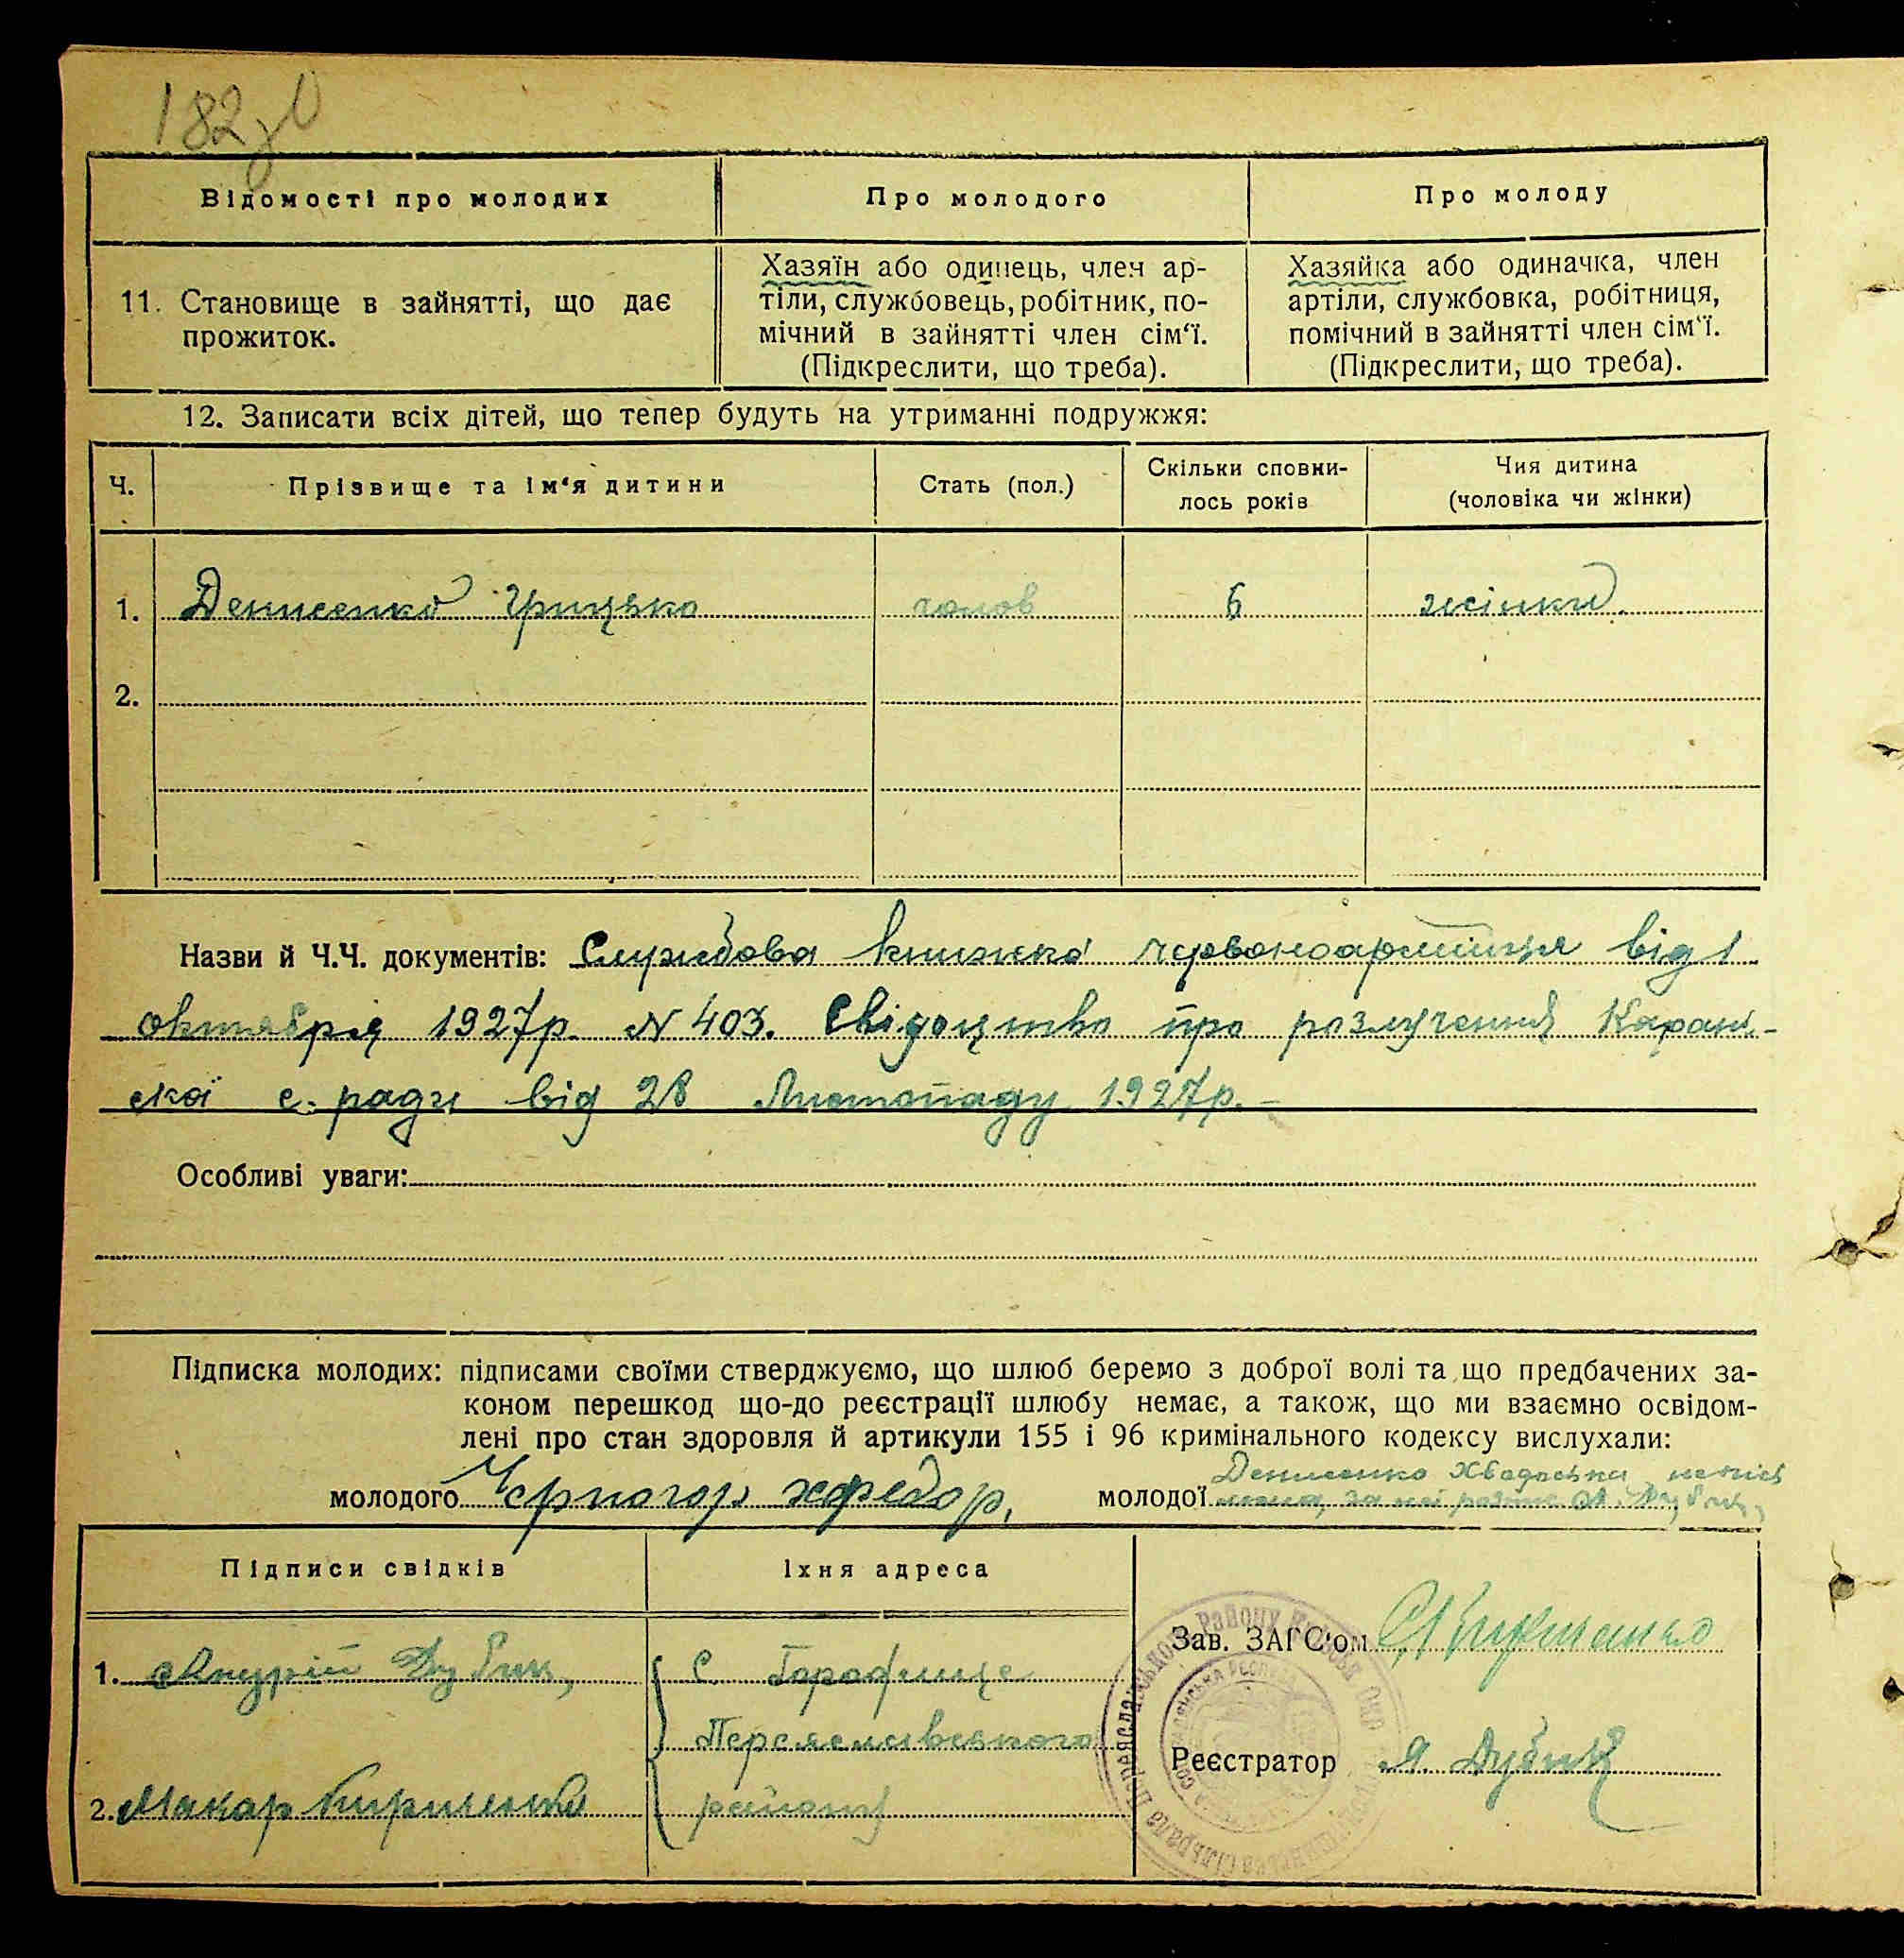 182
Відомості про молодих
Про молодого
Про молоду
11. Становище в зайнятті, що дає
прожиток.
Хазяїн або одинець, член ар-
тіли, службовець, робітник, по-
мічний в зайнятті член сім‘ї.
(Підкреслити, що треба).
Хазяйка або одиначка, член
артіли, службовка, робітниця,
помічний в зайнятті член сім‘ї.
(Підкреслити, що треба).
12. Записати всіх дітей, що тепер будуть на утриманні подружжя:
Ч.
Прізвище та ім‘я дитини
Стать (пол.)
Скільки сповни-
лось років
Чия дитина
(чоловіка чи жінки)
1. Денисенко Грицько чолов 6 жінки.
2.
Назви й Ч.Ч. документів: Службова книжка червоноармійця від 1
октября 1927р. N 403. Свідоцтво про розлучення Карань-
скої с. ради від 28 Листопаду 1927р. -
Особливі уваги:
Підписка молодих: підписами своїми стверджуємо, що шлюб беремо з доброї волі та що предбачених за-
коном перешкод що-до реєстрації шлюбу немає, а також, що ми взаємно освідом-
лені про стан здоровля й артикули 155 і 96 кримінального кодексу вислухали:
молодого Черногор Хфедор,
молодої Денисенко Хведоська
Підписи свідків
Їхня адреса
1. Дубик,
2. Макар Кириленко
С. Городище
Переяславського
району
Зав. ЗАГС‘ом
Реєстратор Я. Дубик